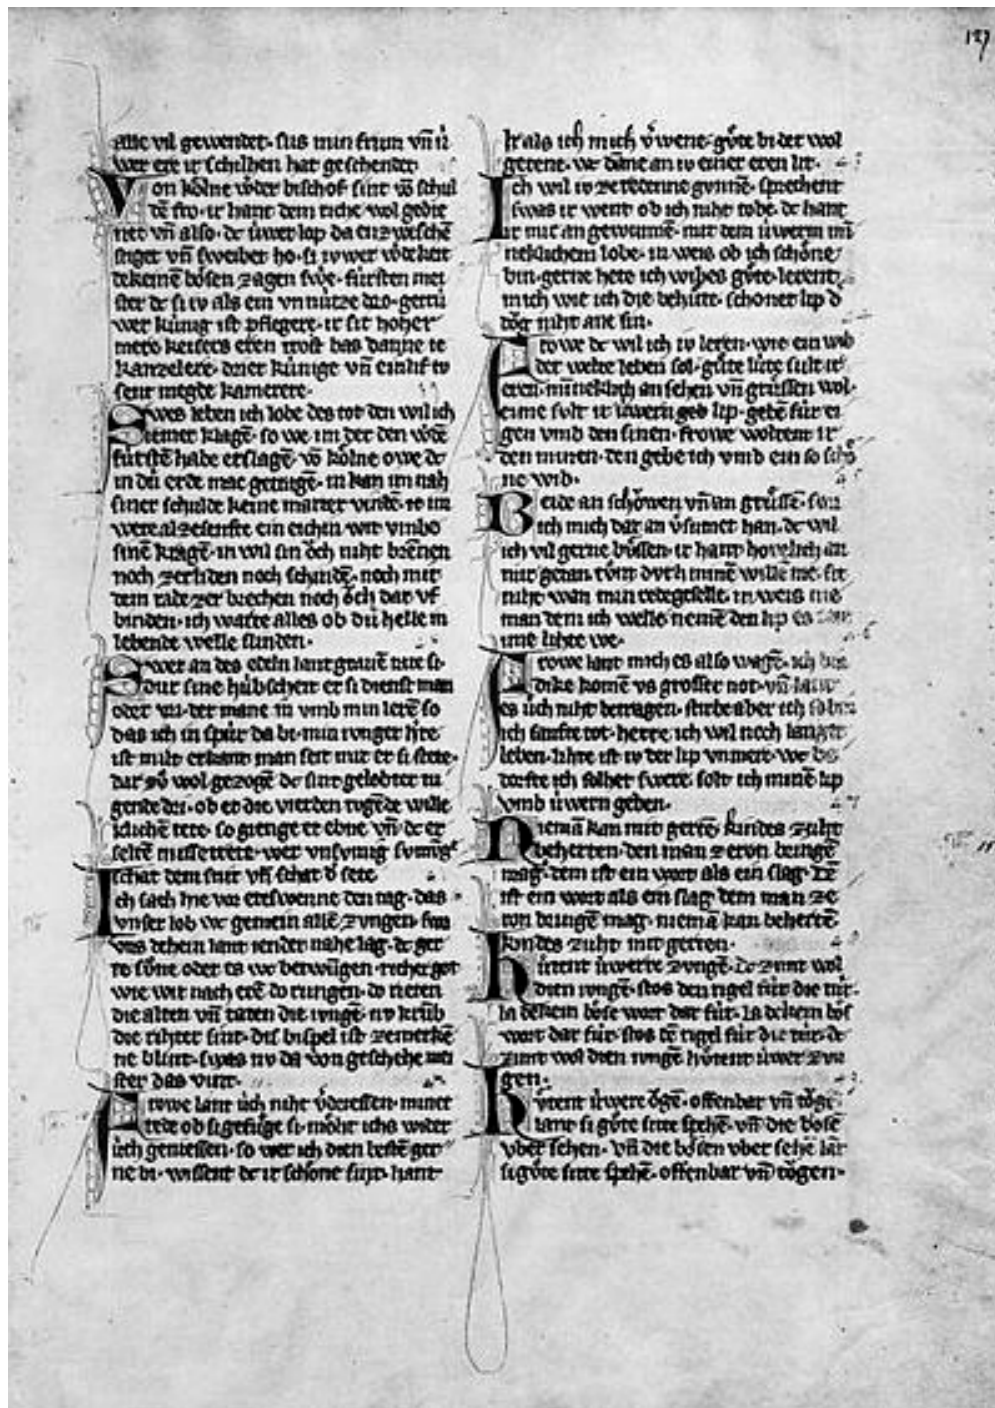 127
alle vil gewendet· sus min frun vn̄ ir
wer ere ir schilhen hat geschendet·
Von kölne w̾der bischof sint vō schul
dē fro· ir hant dem riche wol gedie
net vn̄ also· dc úwer lop da enzwischē
stiget vn̄ sweibet ho· si iuwer w̾dekeit
dekeinē bösen zagen swe· fúrsten mei
ster dc si iu als ein vnnútze dro· getrú
wer kúnig ist pflegere· ir sit hoher
mere keisers eren trost bas danne ie
kanzelere· drier kúnige vn̄ einlif tv
sent megde kamerere·
Swes leben ich lobe des tot den wil ich
iemer klagē· so we im der den w̾dē
fúrstē habe erslagē· vō kölne owe dc
in dú erde mac getragē· in kan im nah
siner schulde keine marter vindē· ie im
were alzesenfte ein eichin wit vmbe
sinē kragē· in wil sin öch niht brēnen
noch zerliden noch schindē· noch mit
dem rade zer brechen noch öch dar vf
binden· ich warte alles ob dú helle in
lebende welle slinden·
Swer an des edeln lantgrauē rate si·
dur sine húbscheit er si dienst man
oder vri· der mane in vmb min lerē so
das ich in spúr da bi· min iunger h̾re
ist milt erkant man seit mir er si stete·
dar zv̊ wol gezogē dc sint gelobter tu
gende dri· ob er die vierden tvgēde wille
klichē tete· so gienge er ebne vn̄ dc er
seltē missetrete· wer vnsvmig svmvge
schat dem snit vn̄ schat d̾ sete
Ich sach hie vor etswenne den tag· das
vnser lob wc gemein allē zvngen· swa
vns dehein lant iender nahe lag· dc ger
te sv̊ne oder es wc betwūgen· richer got
wie wir nach erē do rungen· do rieten
die alten vn̄ taten die iungē· nv krūb
die rihter sint· dis bispel ist zemerkē
ne blint· swas nv da von geschehe mei
ster das vint·
Frowe lant úch niht v̾driessen· miner
rede ob si gefúge si· möht ichs wider
úch geniessen· so wer ich dien besten ger
ne bi· wissent dc ir schöne sint· hant
Ir als ich mich v̾wene· gv̊te bi der wol
getene· wc dāne an iv einer eren lit·
Ich wil iv ze redenne gvnnē· sprechent
swas ir went ob ich niht tobe· dc hant
ir mir an gewunnē· mit dem úwerm mī
neklichem lobe· in weis ob ich schöne
bin· gerne hete ich wibes gv̊te· lerent
mich wie ich die behúte· schoner lip d̾
tög niht ane sin·
Frowe dc wil ich iv leren· wie ein wib
der welte leben sol· gv̊te lúte sult ir
eren· mīneklich an sehen vn̄ grússen wol·
eime svlt ir úwern geb lip· gebē fúr ei
gen vmb den sinen· frowe woltent ir
den minen· den gebe ich vmb ein so schö
ne wib·
Beide an schöwen vn̄ an grv̊ssē· swc
ich mich dar an v̾sumet han· dc wil
ich vil gerne bv̊ssen· ir hant hovelich an
mir getan· tv̊nt dvrh minē willē me· sit
niht wan min redegeselle· in weis nie
man dem ich welle nemē den lip es
ime lihte we·
Frowe lant mich es also wagē· ich bin
dike komē vs grosser not· vn̄ lant
es úch niht betragen· stirbe aber ich so bin
ich sanfte tot· herre ich wil noch langer
leben· lihte ist iv der lip vnmere· wc be
dorfte ich solher swere· solt ich minē lip
vmb úwern geben·
Niemā kan mit gertē· kindes zuht
beherten· den man zeren bringē
mag· dem ist ein wort als ein slag· dē
ist ein wort als ein slag dem man ze
ren bringē mag· niemā kan behertē·
kindes zuht mit gerten·
Hútent úwerre zvngē· dc zimt wol
dien iungē· stos den rigel fúr die túr·
la dekein böse wort dar fúr· la dekein bös
wort dar fúr· stos dē rigel fúr die túr· dc
zimt wol dien iungen hútent úwer zvn
gen·
Hútent úwere ögē· offenbar vn̄ tögē·
lant si gv̊te sitte spehē· vn̄ die bösē
vber sehen· vn̄ die bösen vber sehē lāt
si gv̊te sitte spehē· offenbar vn̄ tögen·